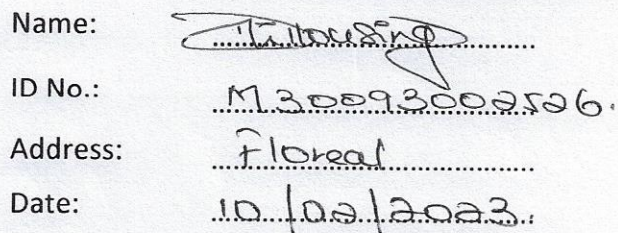 Name:
ID No.: M300930002526.
Address: Floreal
Date: 10/02/2023.